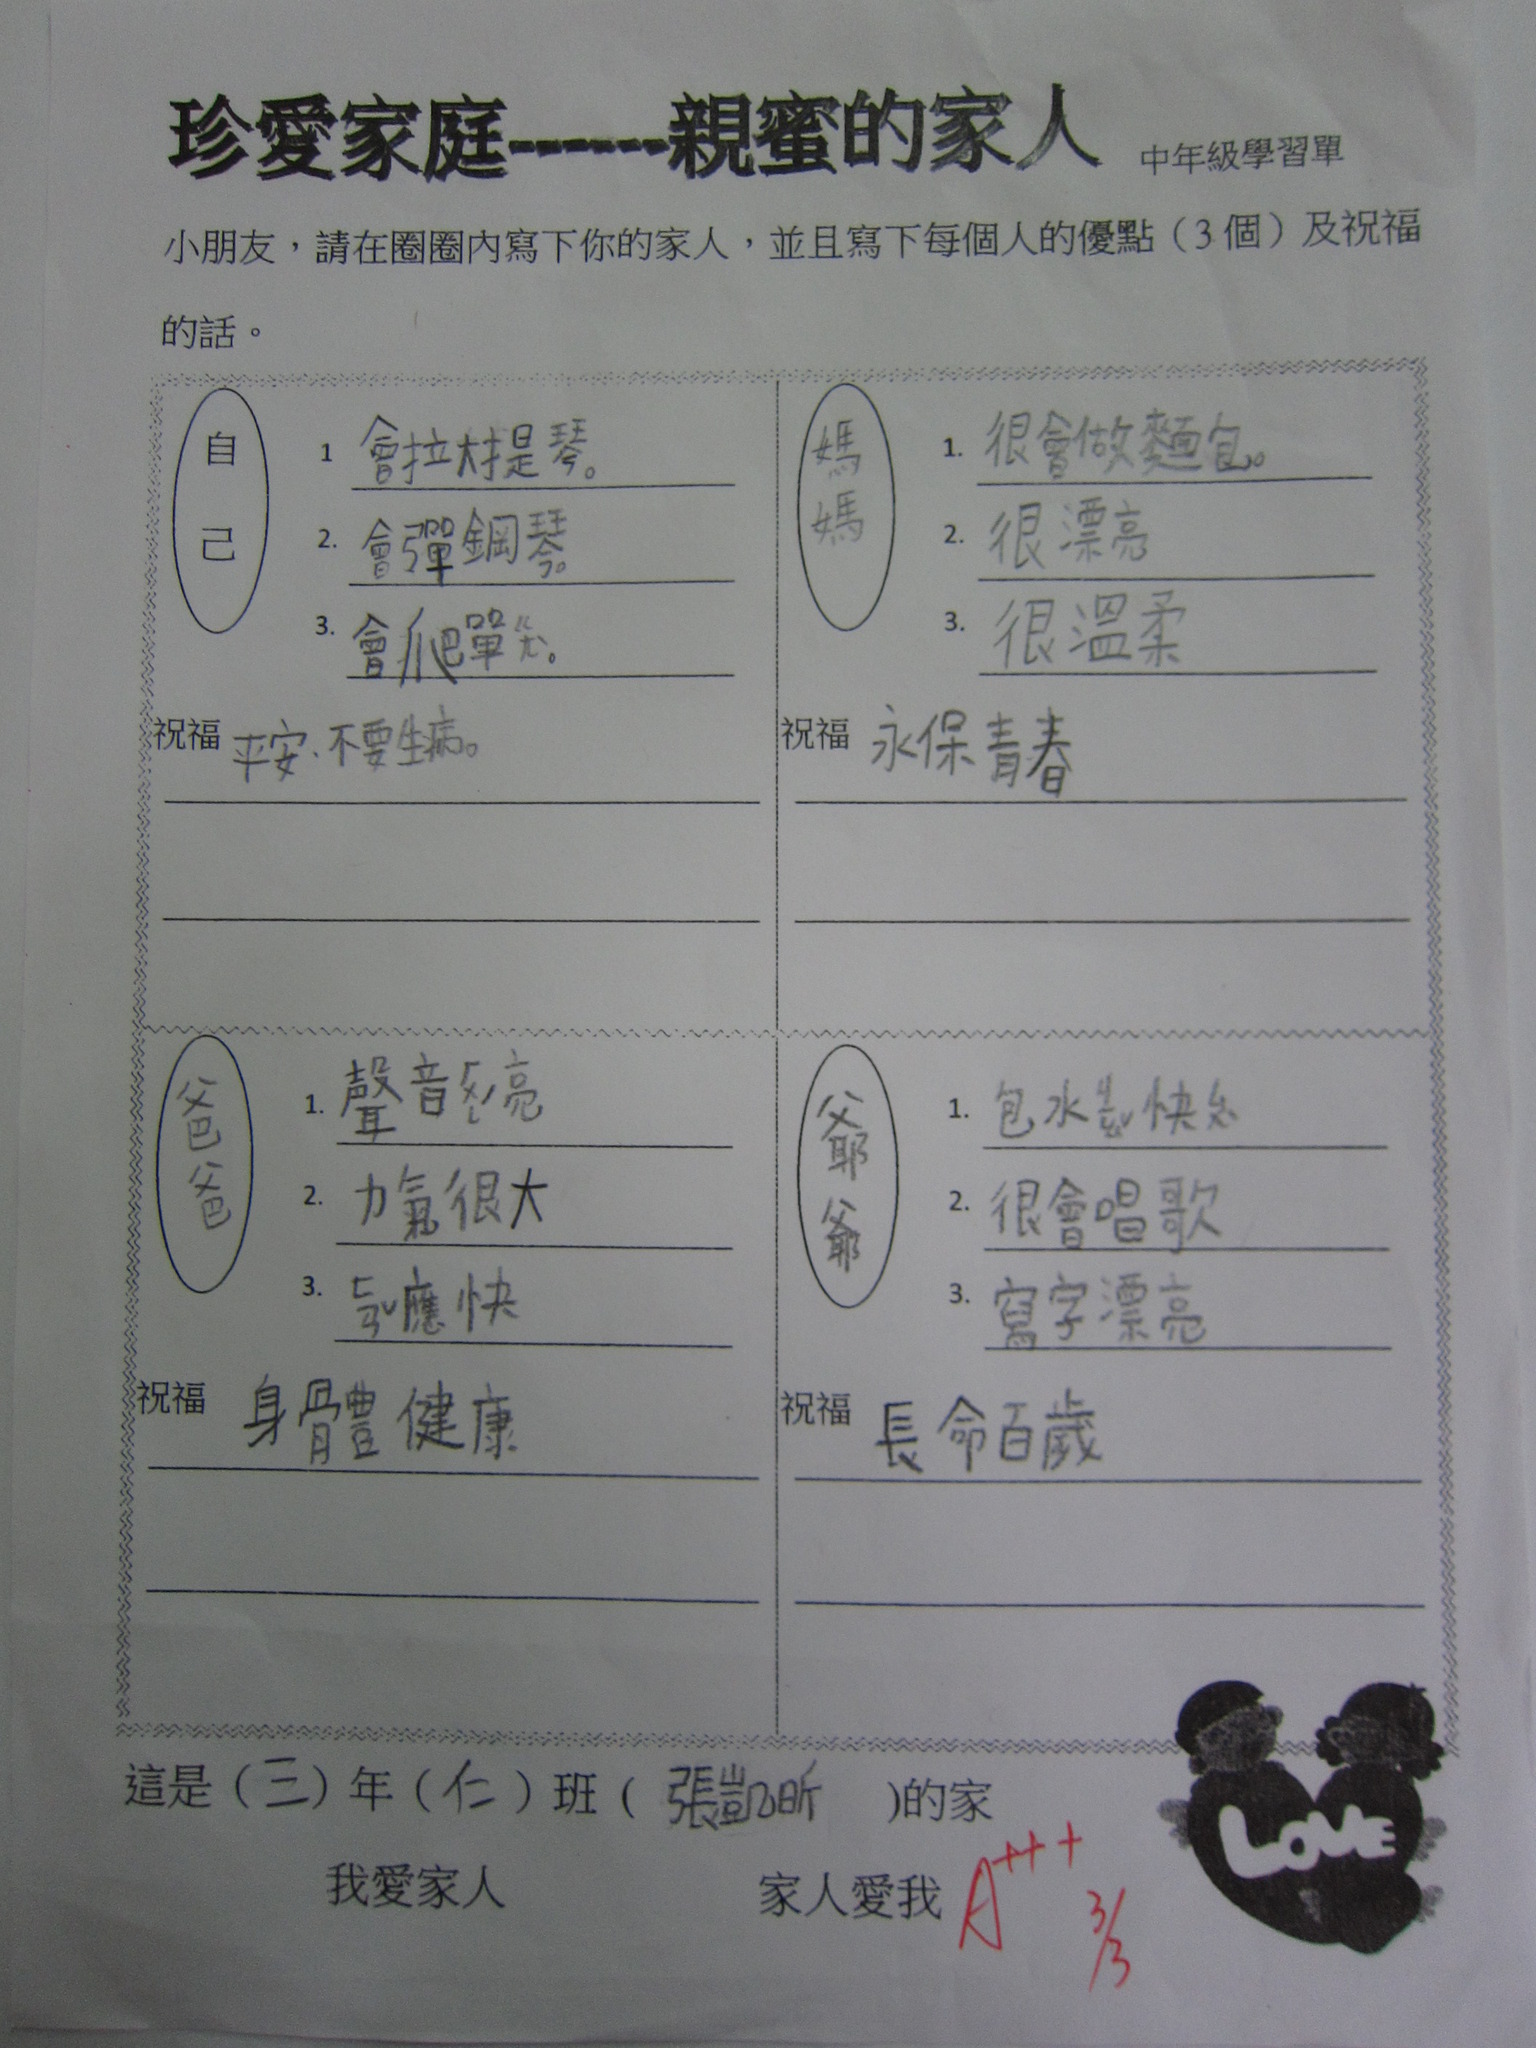 珍愛家庭------親蜜的家人 中年級學習單
小朋友，請在圈圈內寫下你的家人，並且寫下每個人的優點（3個）及祝福
的話。
自己
1 會拉大提琴。
2. 會彈鋼琴。
3. 會爬單ㄍㄤ。
祝福 平安、不要生病。
媽媽
1. 很會做麵包。
2. 很漂亮
3. 很溫柔
祝福 永保青春
爸爸
1. 聲音 亮
2. 力氣很大
3. ㄈㄢˇ應快
祝福 身體健康
爺爺
1. 包水 快
2. 很會唱歌
3. 寫字漂亮
祝福 長命百歲
這是（三）年（仁）班（張凱昕）的家
我愛家人 家人愛我
A+++ 3/3
LOVE